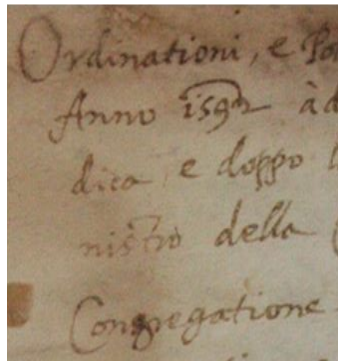 Ordinationi, e Pa
Anno 1592 à d
dica e doppo l
nistro della
Congregatione